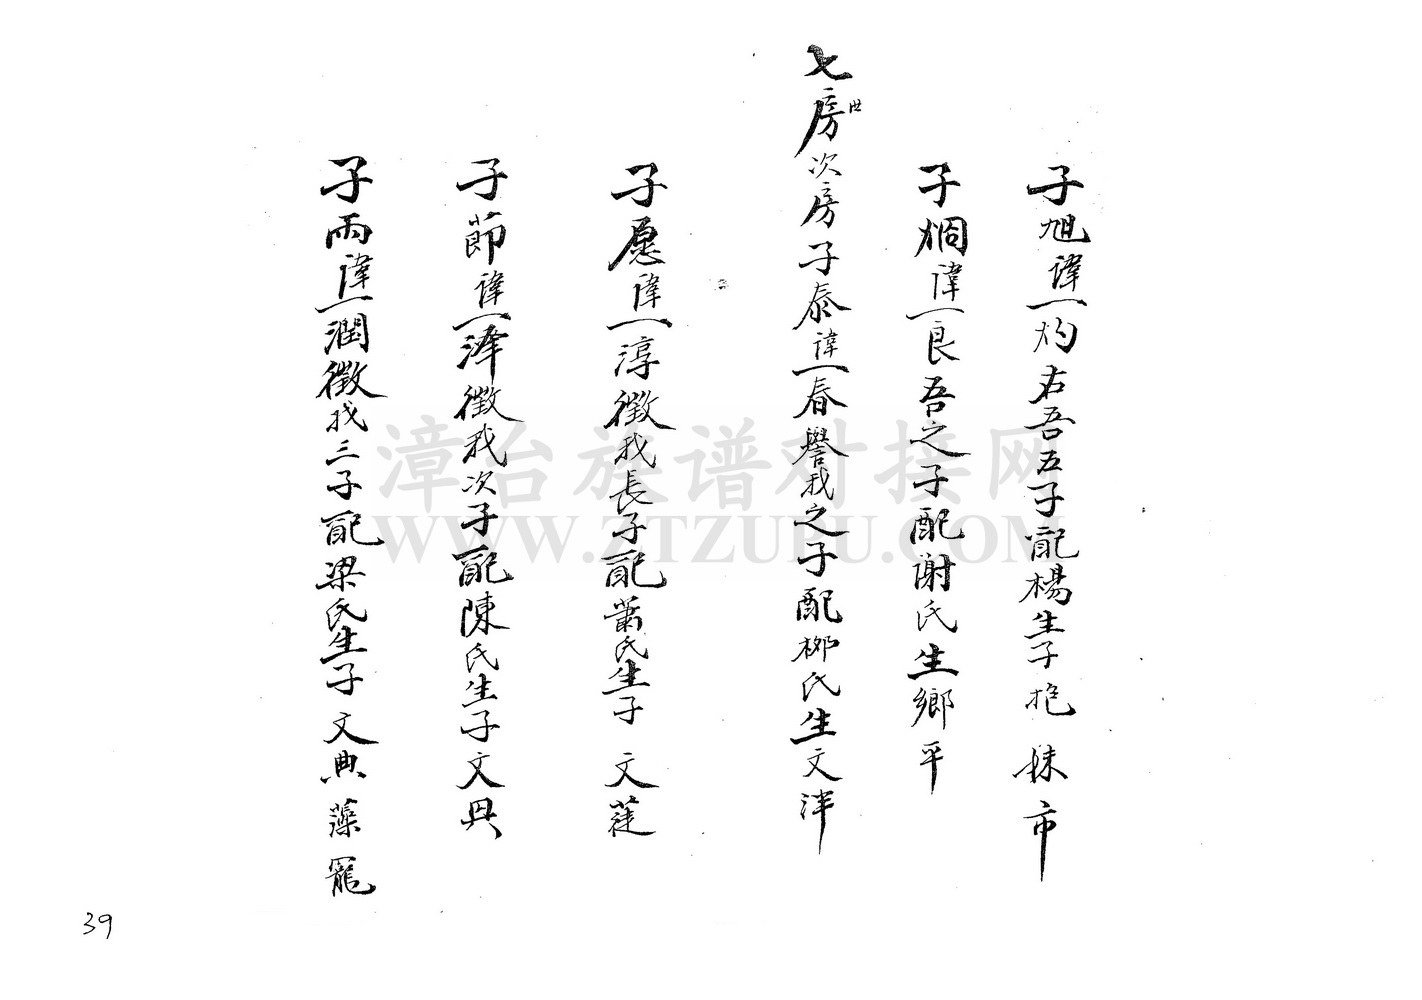 子旭諱一灼右吾五子配楊生子抱 妹 市
子烱諱一良吾之子配謝氏生鄉平
七房世次房子泰諱一春譽我之子配柳氏生文泮
子愿諱一淳徵我長子配葉氏生子文蓰
子節諱一澤徵我次子配陳氏生子文興
子雨諱一潤徵我三子配梁氏生子文典 藻 寵
漳台族谱对接网
WWW.ZTZUPU.COM
39